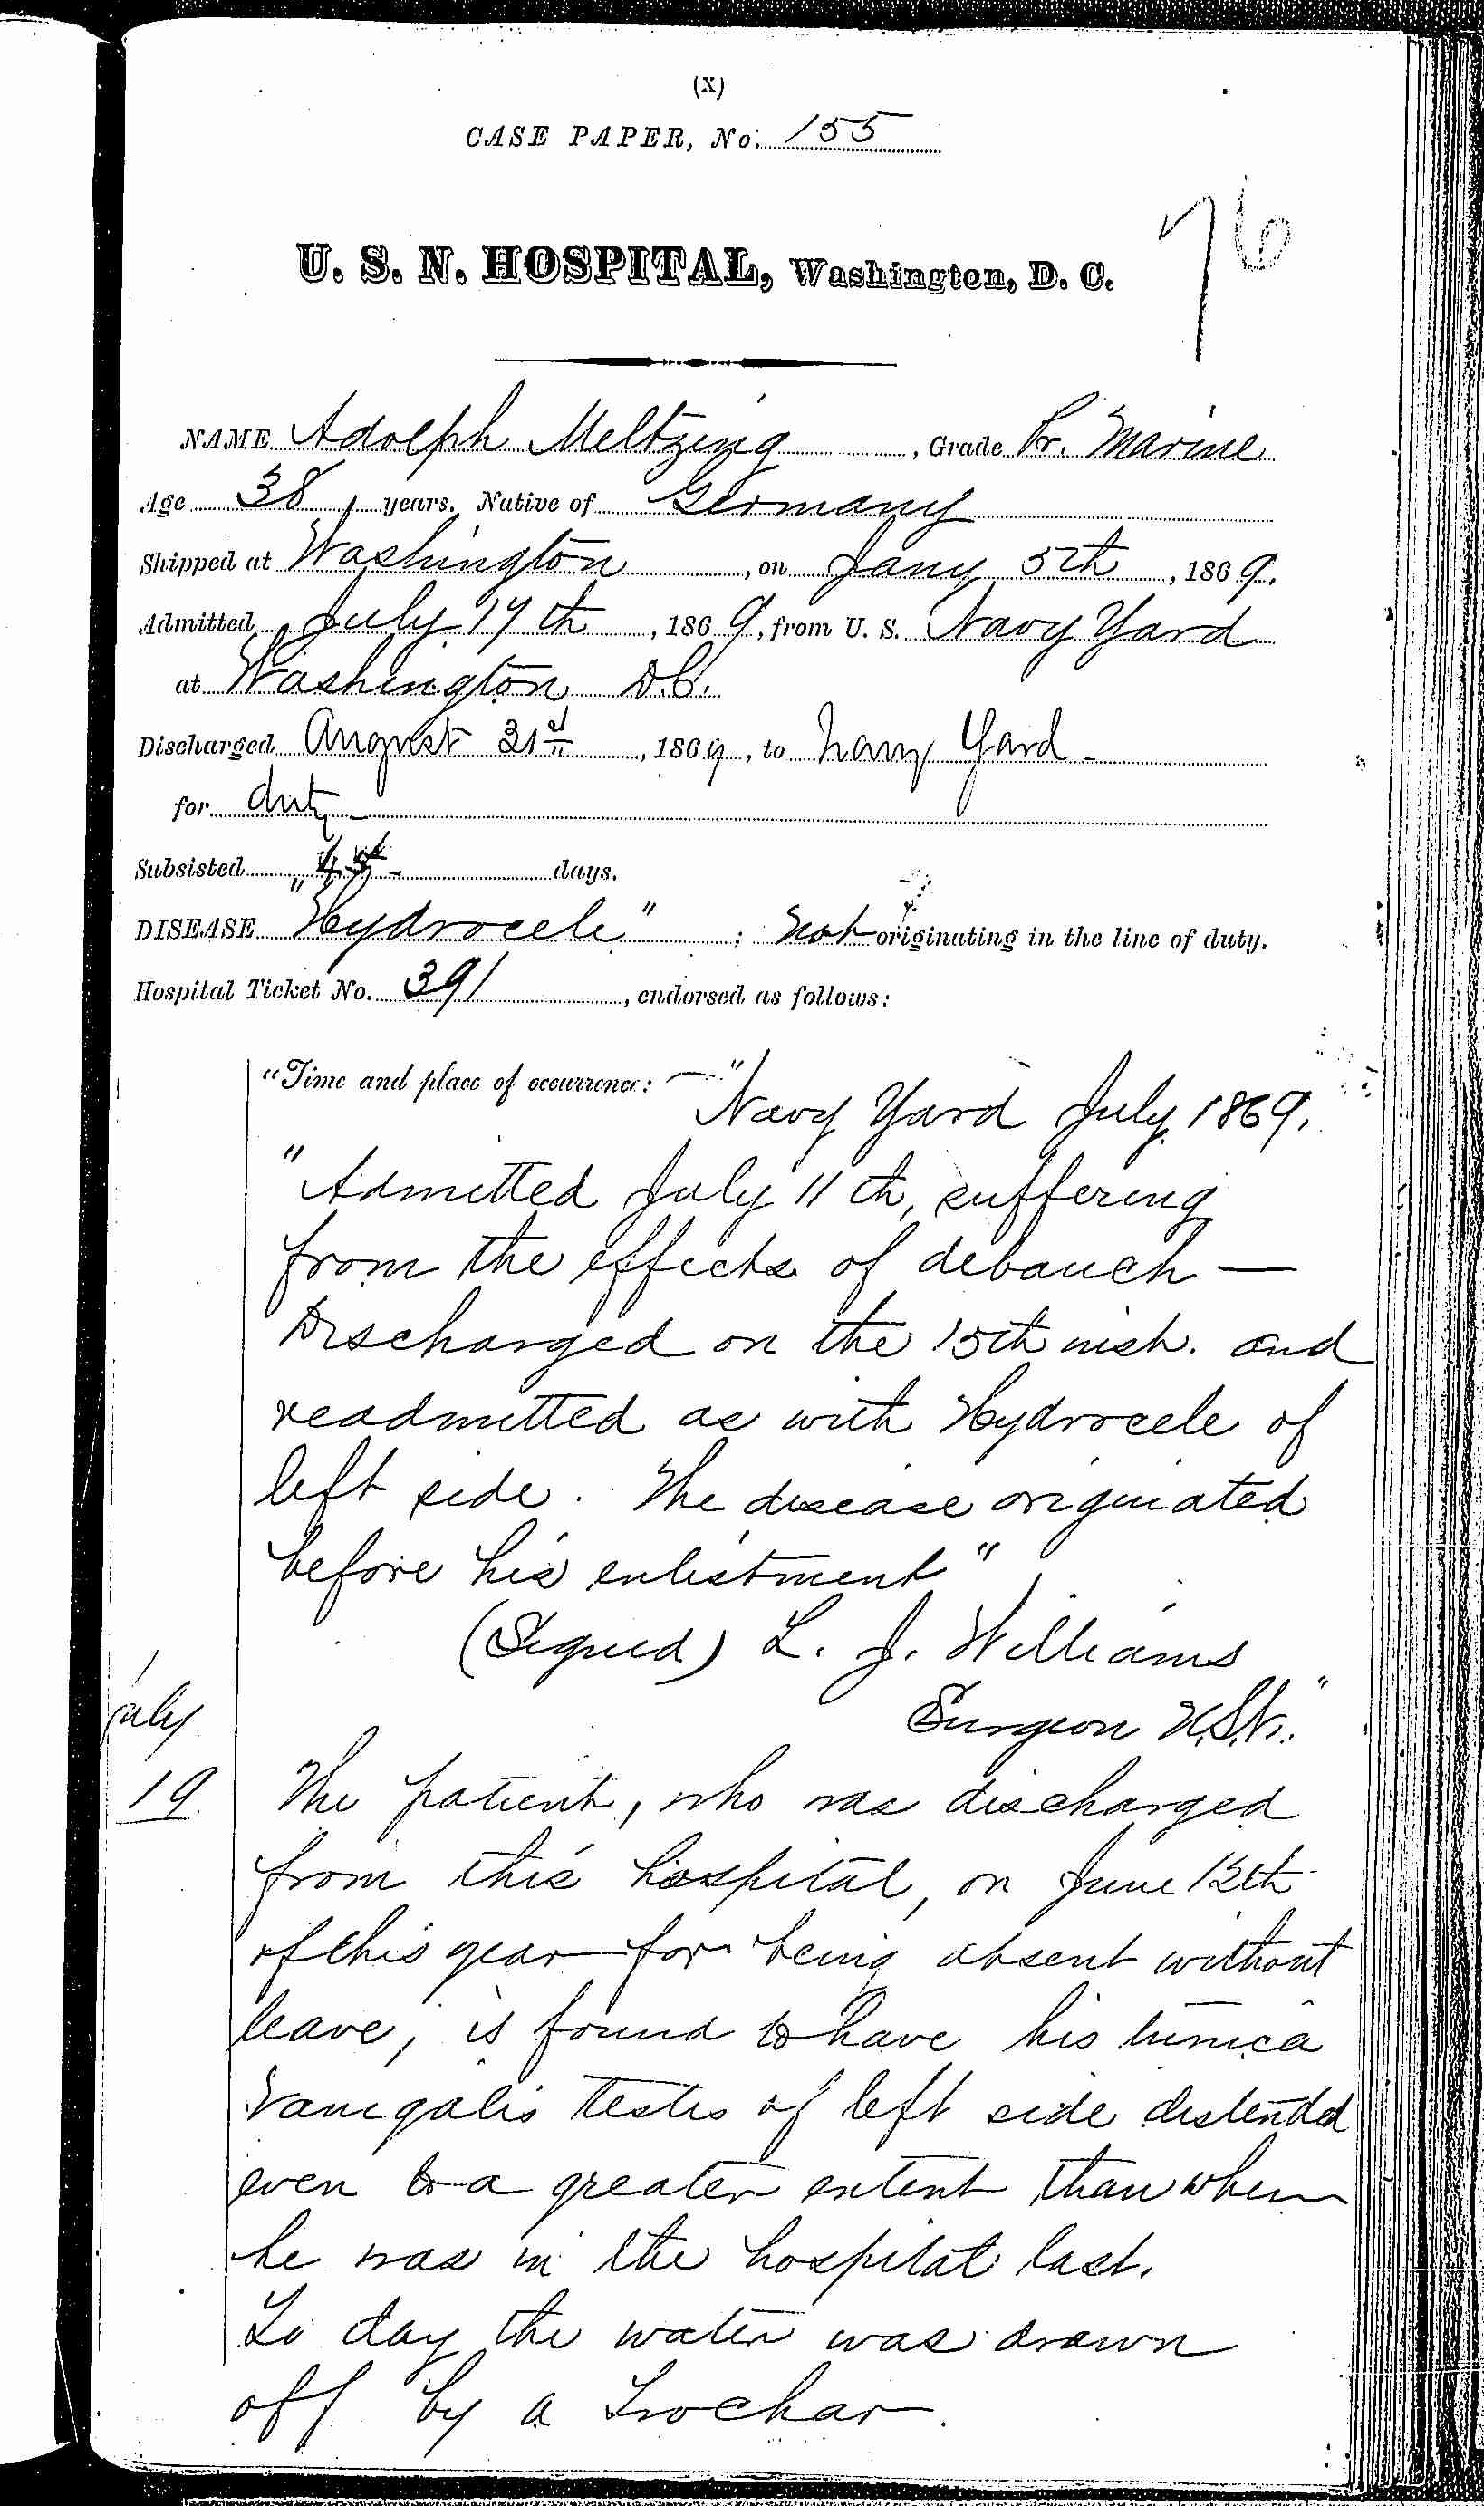 (X)
CASE PAPER, No. 155
76
U. S. N. HOSPITAL, Washington, D. C.
NAME Adolph Meltzing, Grade Pr. Marine
Age 38 years. Native of Germany
Shipped at Washington, on Jany 5th, 1869.
Admitted July 17th, 1869, from U. S. Navy Yard
at Washington D.C.
Discharged August 31st, 1869, to Navy Yard -
for duty -
Subsisted 45 - days.
DISEASE "Hydrocele"; not originating in the line of duty.
Hospital Ticket No. 391, endorsed as follows:
"Time and place of occurrence: — "Navy Yard July 1869.
"Admitted July 11th, suffering
from the effects of debauch —
Discharged on the 15th inst. and
readmitted as with Hydrocele of
left side. The disease originated
before his enlistment"
(Signed) L. J. Williams
Surgeon U.S.N."
July
19 The patient, who was discharged
from this hospital, on June 12th
of this year for being absent without
leave, is found to have his tunica
vanigalis testis of left side distended
even to a greater extent than when
he was in the hospital last.
To day the water was drawn
off by a Trochar.